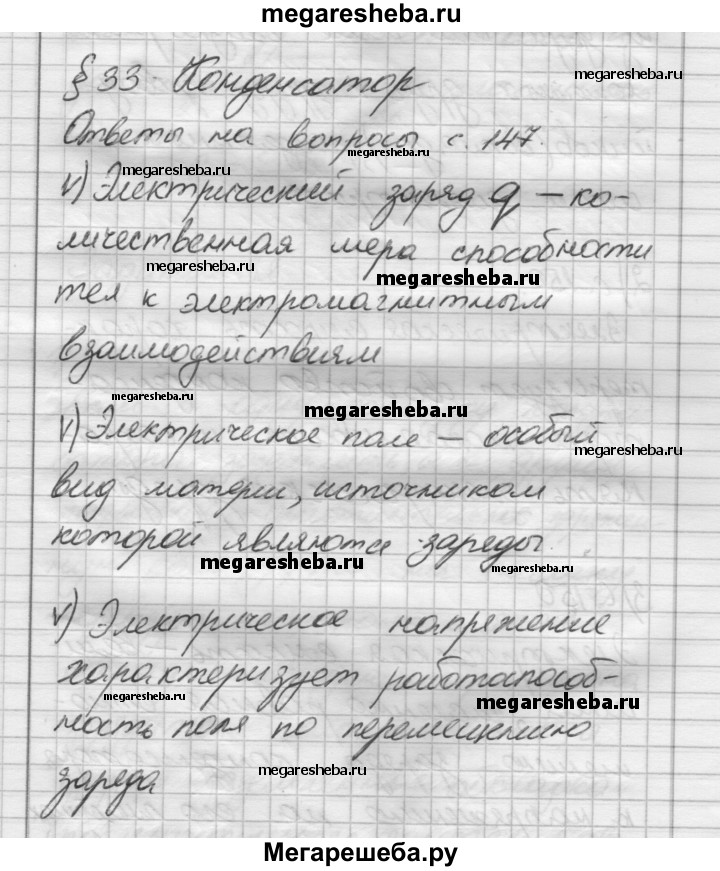 megaresheba.ru
§ 33 Конденсатор
megaresheba.ru
Ответы на вопросы с. 147.
megaresheba.ru
megaresheba.ru
v) Электрический заряд q – ко-
личественная мера способности
megaresheba.ru
megaresheba.ru
тел к электромагнитным
взаимодействиям
megaresheba.ru
megaresheba.ru
v) Электрическое поле – особый
megaresheba.ru
вид материи, источником
которой являются заряды.
megaresheba.ru
megaresheba.ru
v) Электрическое напряжение
характеризует работоспособ-
megaresheba.ru
megaresheba.ru
ность поля по перемещению
megaresheba.ru
заряда
Мегарешеба.ру